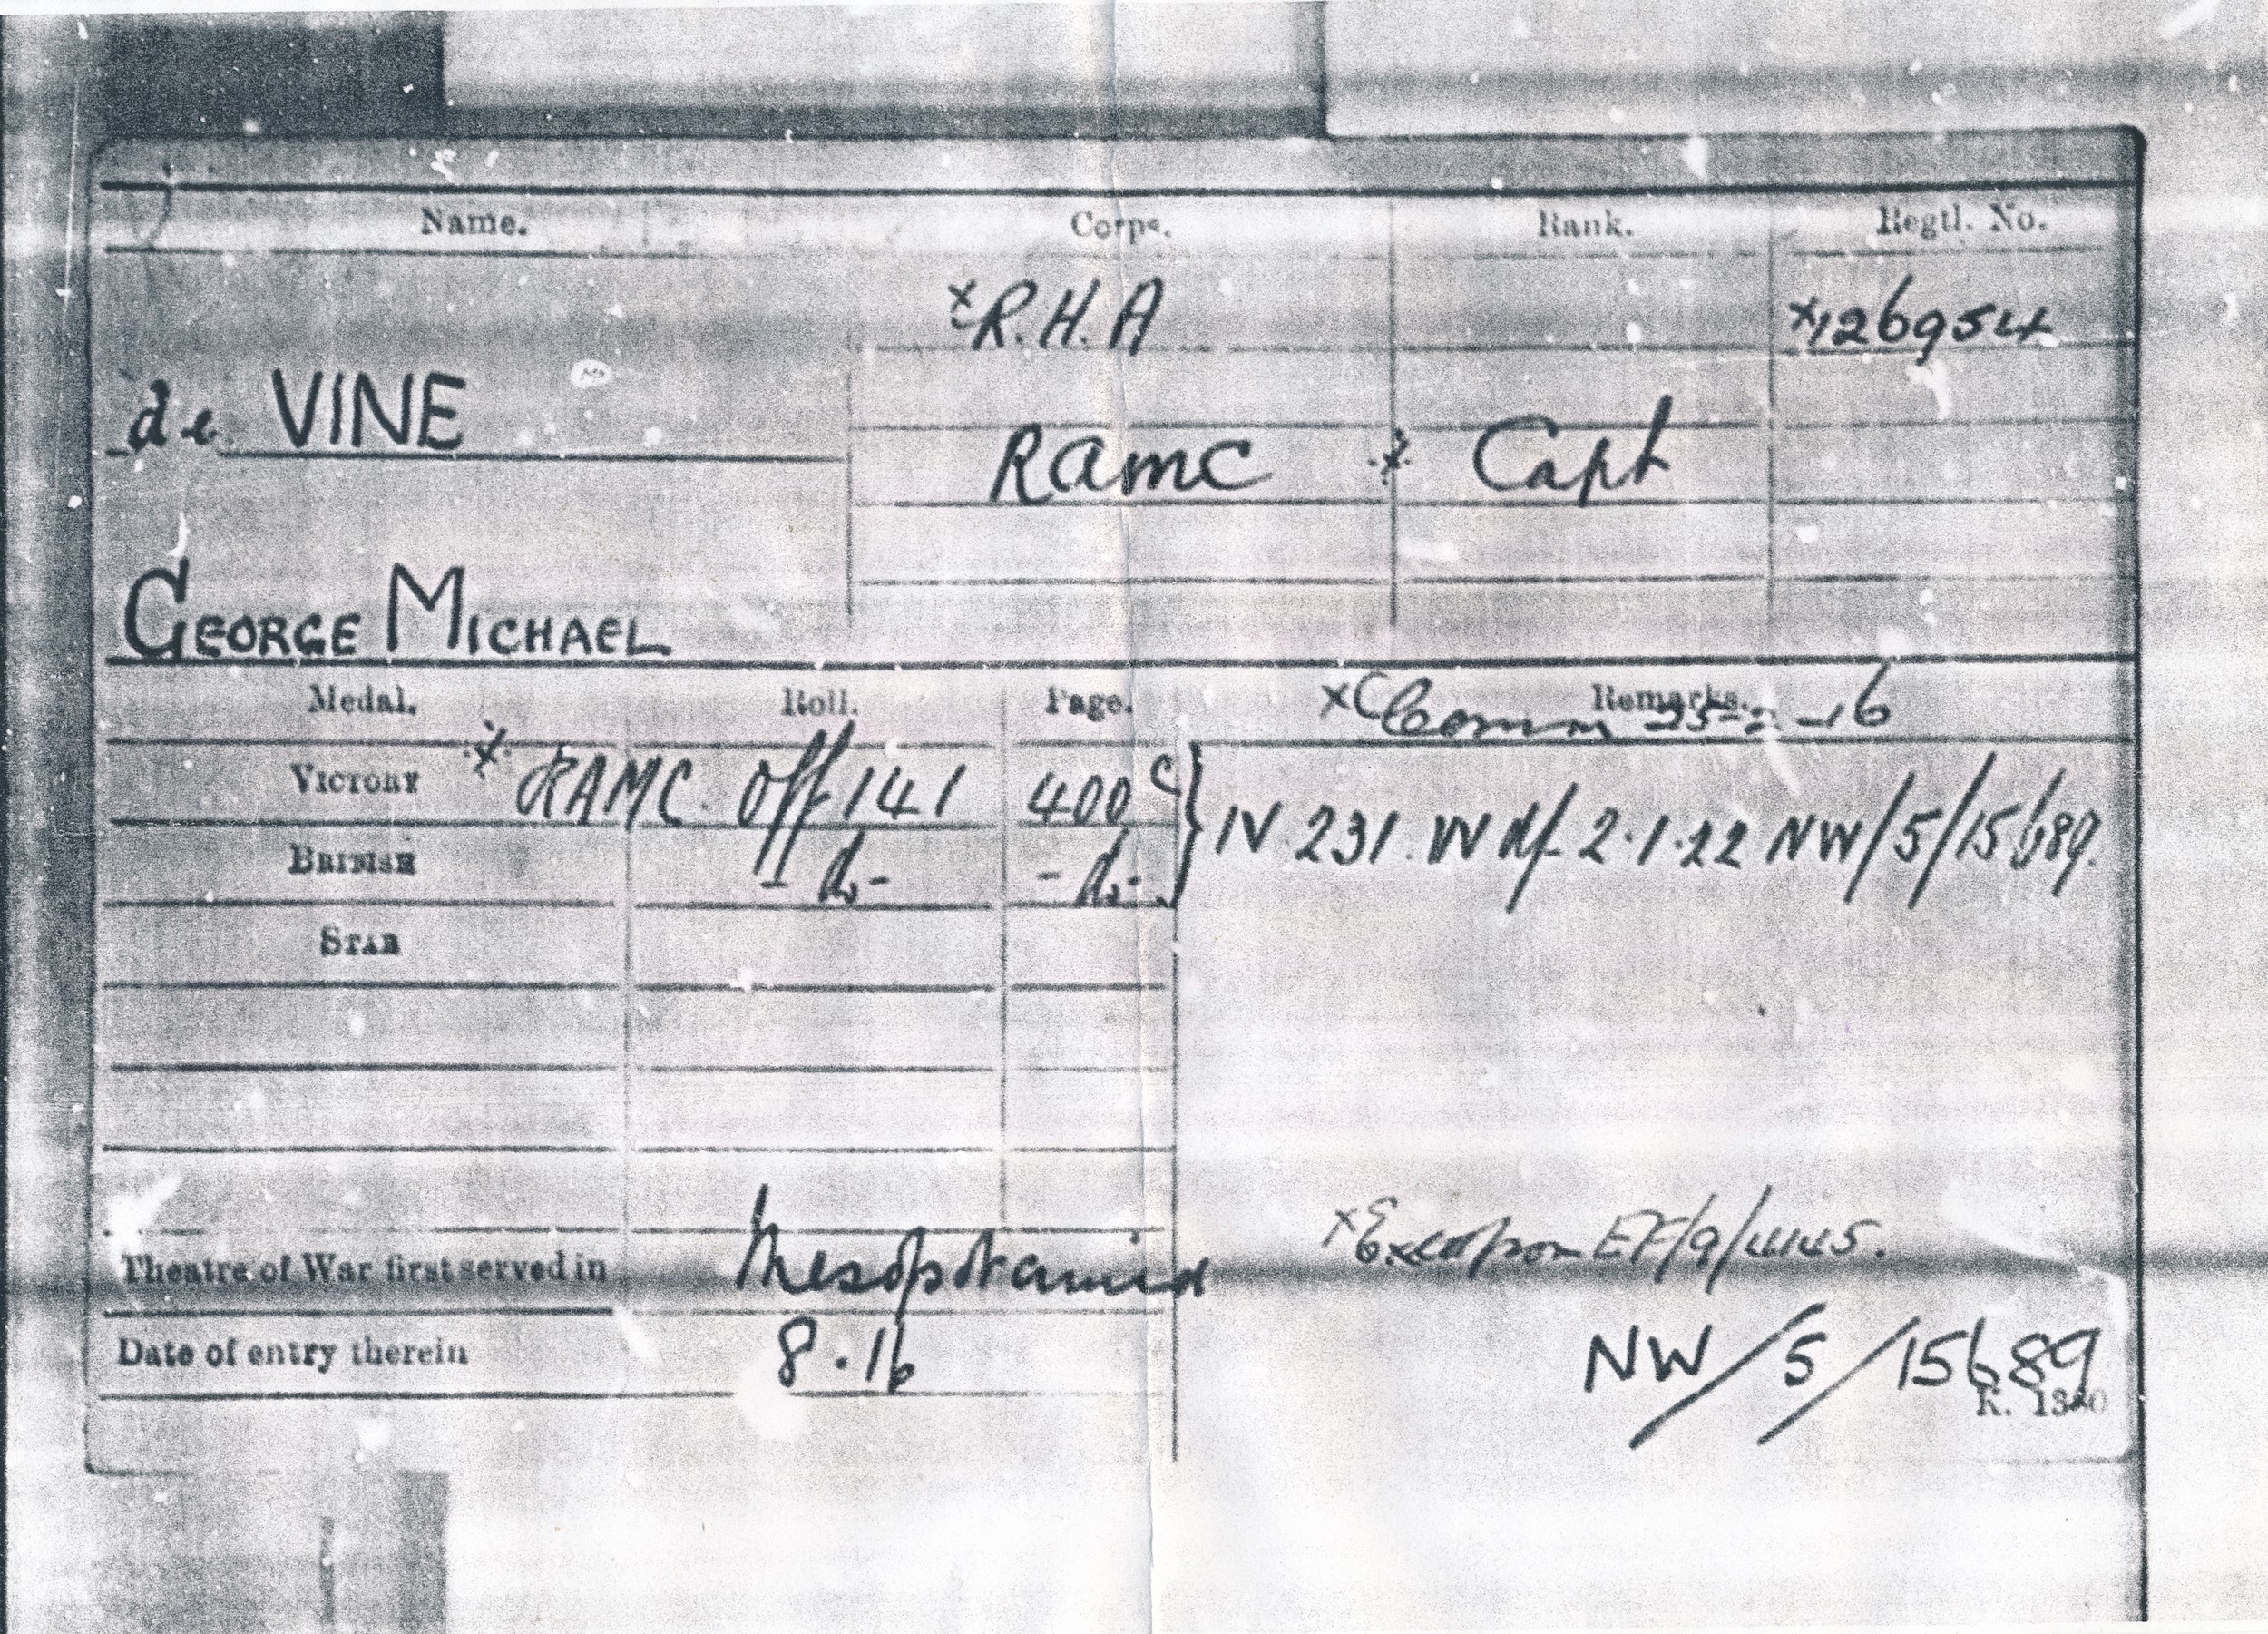 Name. Corps. Rank. Regtl. No.
x R.H.A x126954
de VINE
RAMC * Capt
GEORGE MICHAEL
Medal. Roll. Page. Remarks.
x Comm 16
VICTORY * RAMC Off 141 400 C
BRITISH -do- -do- } IV 231. W df 2.1.22 NW/5/15689.
STAR
Theatre of War first served in Mesopotamia
x EF/9/
Date of entry therein 8.16
NW/5/15689
K. 1380